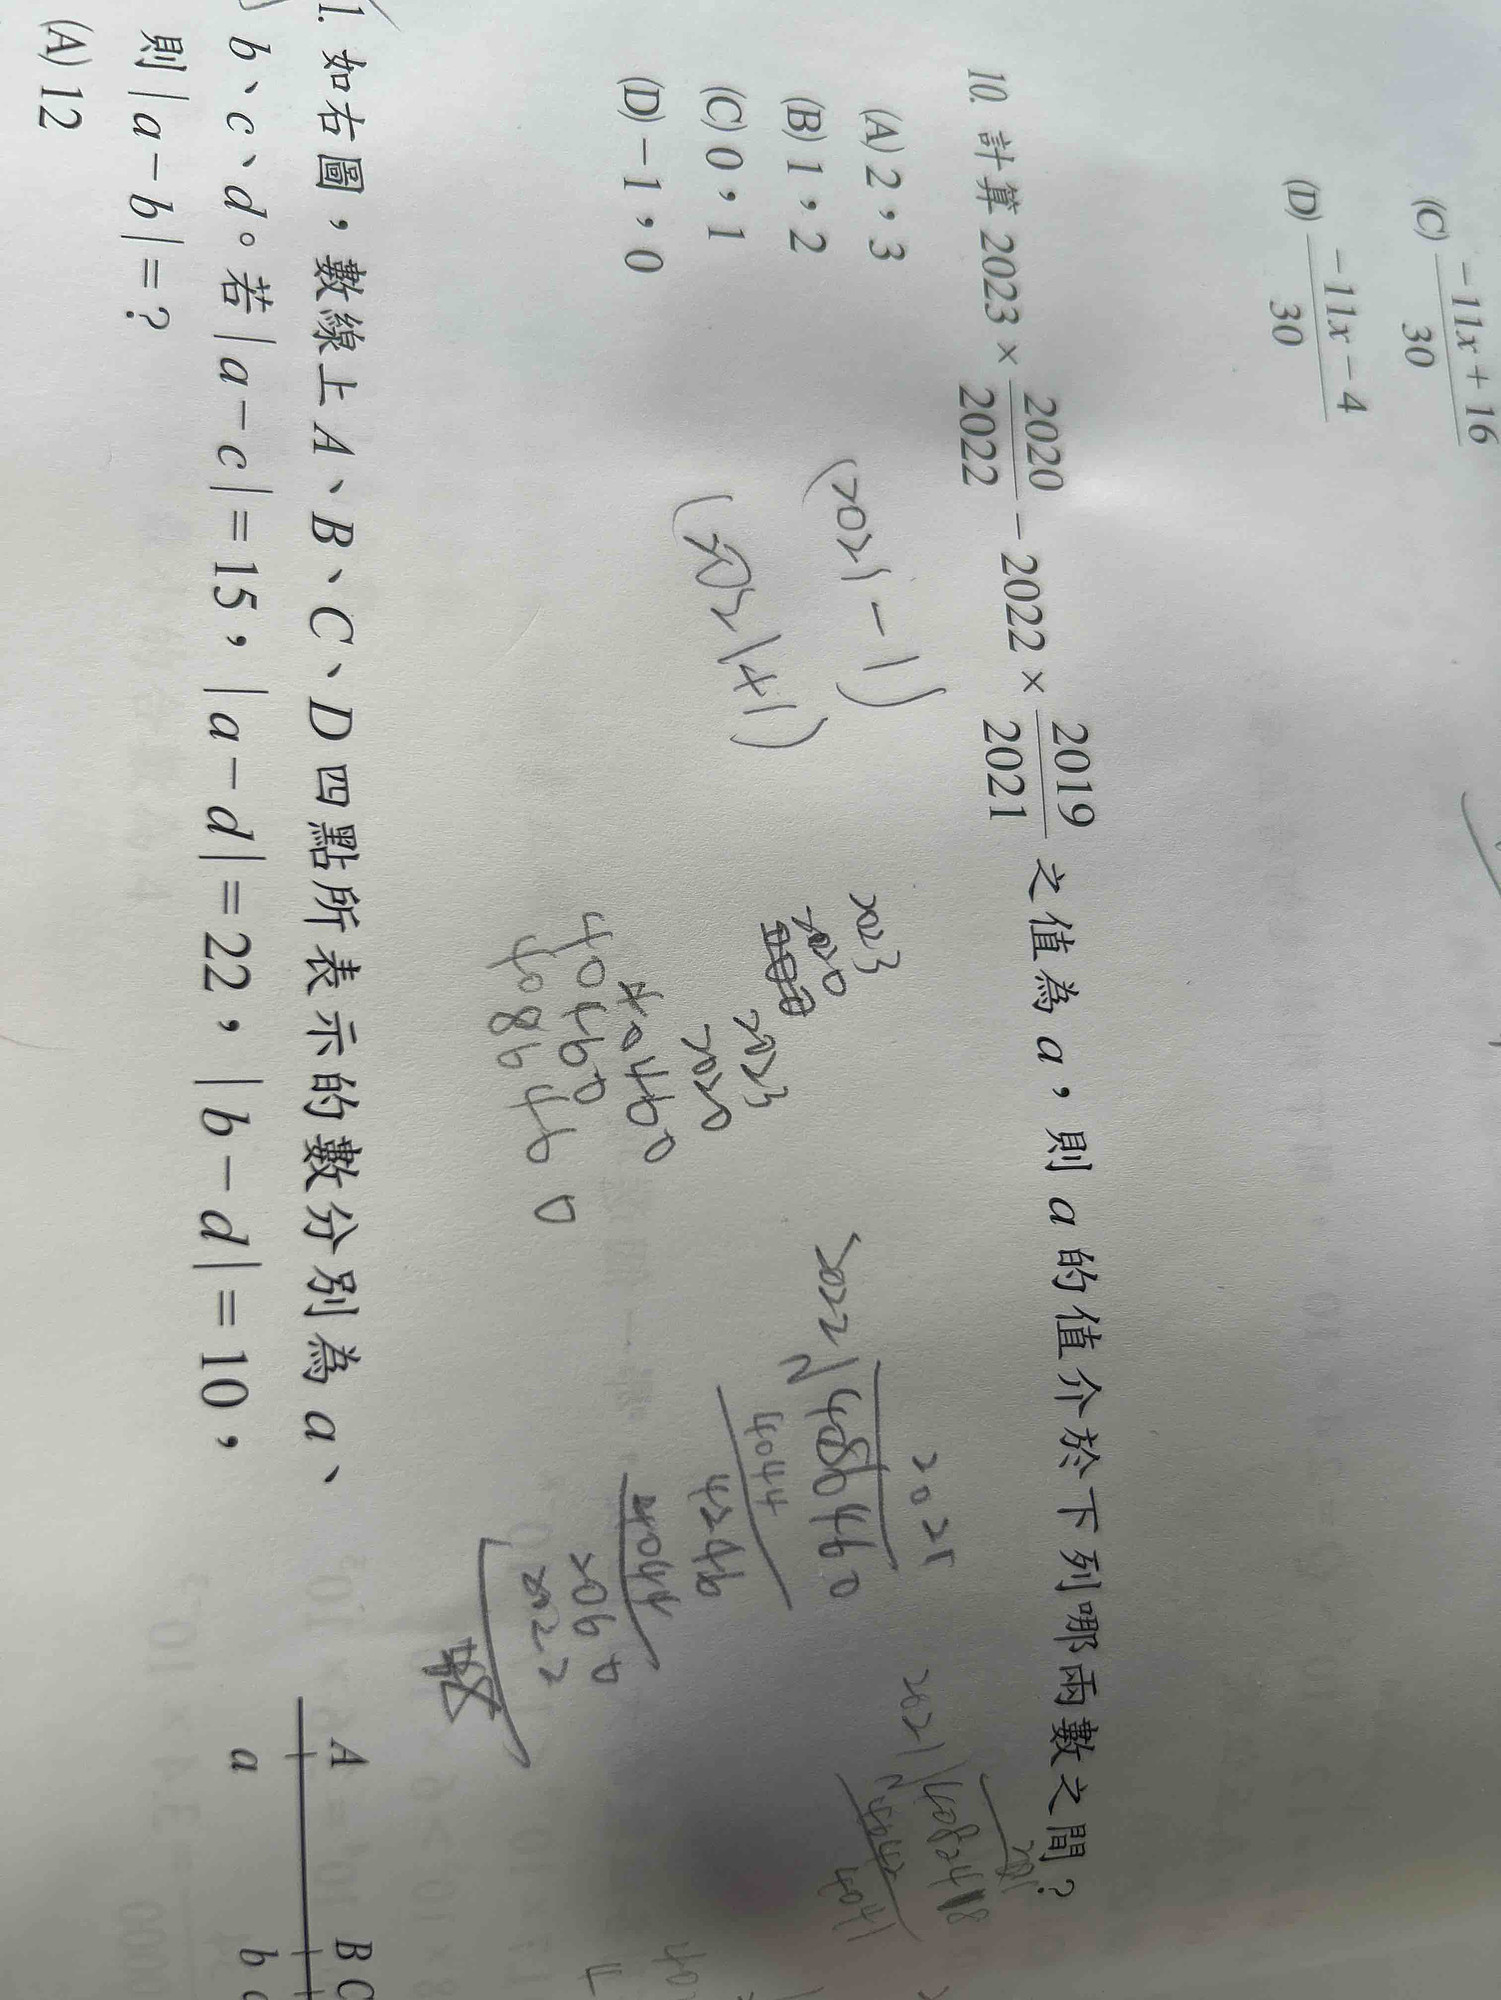 (C) \frac{-11x+16}{30}
(D) \frac{-11x-4}{30}
10. 計算 2023 × \frac{2020}{2022} - 2022 × \frac{2019}{2021} 之值為 a，則 a 的值介於下列哪兩數之間？
(A) 2，3
(B) 1，2
(C) 0，1
(D) -1，0
(2021-1)
(2021+1)
2023
2020
2023
2020
40460
2022
2021
4086460
4044
4246
4044
2020
2022
2021
4042
1. 如右圖，數線上 A、B、C、D 四點所表示的數分別為 a、
b、c、d。若 | a - c | = 15，| a - d | = 22，| b - d | = 10，
則 | a - b | = ?
(A) 12
A B C
a b